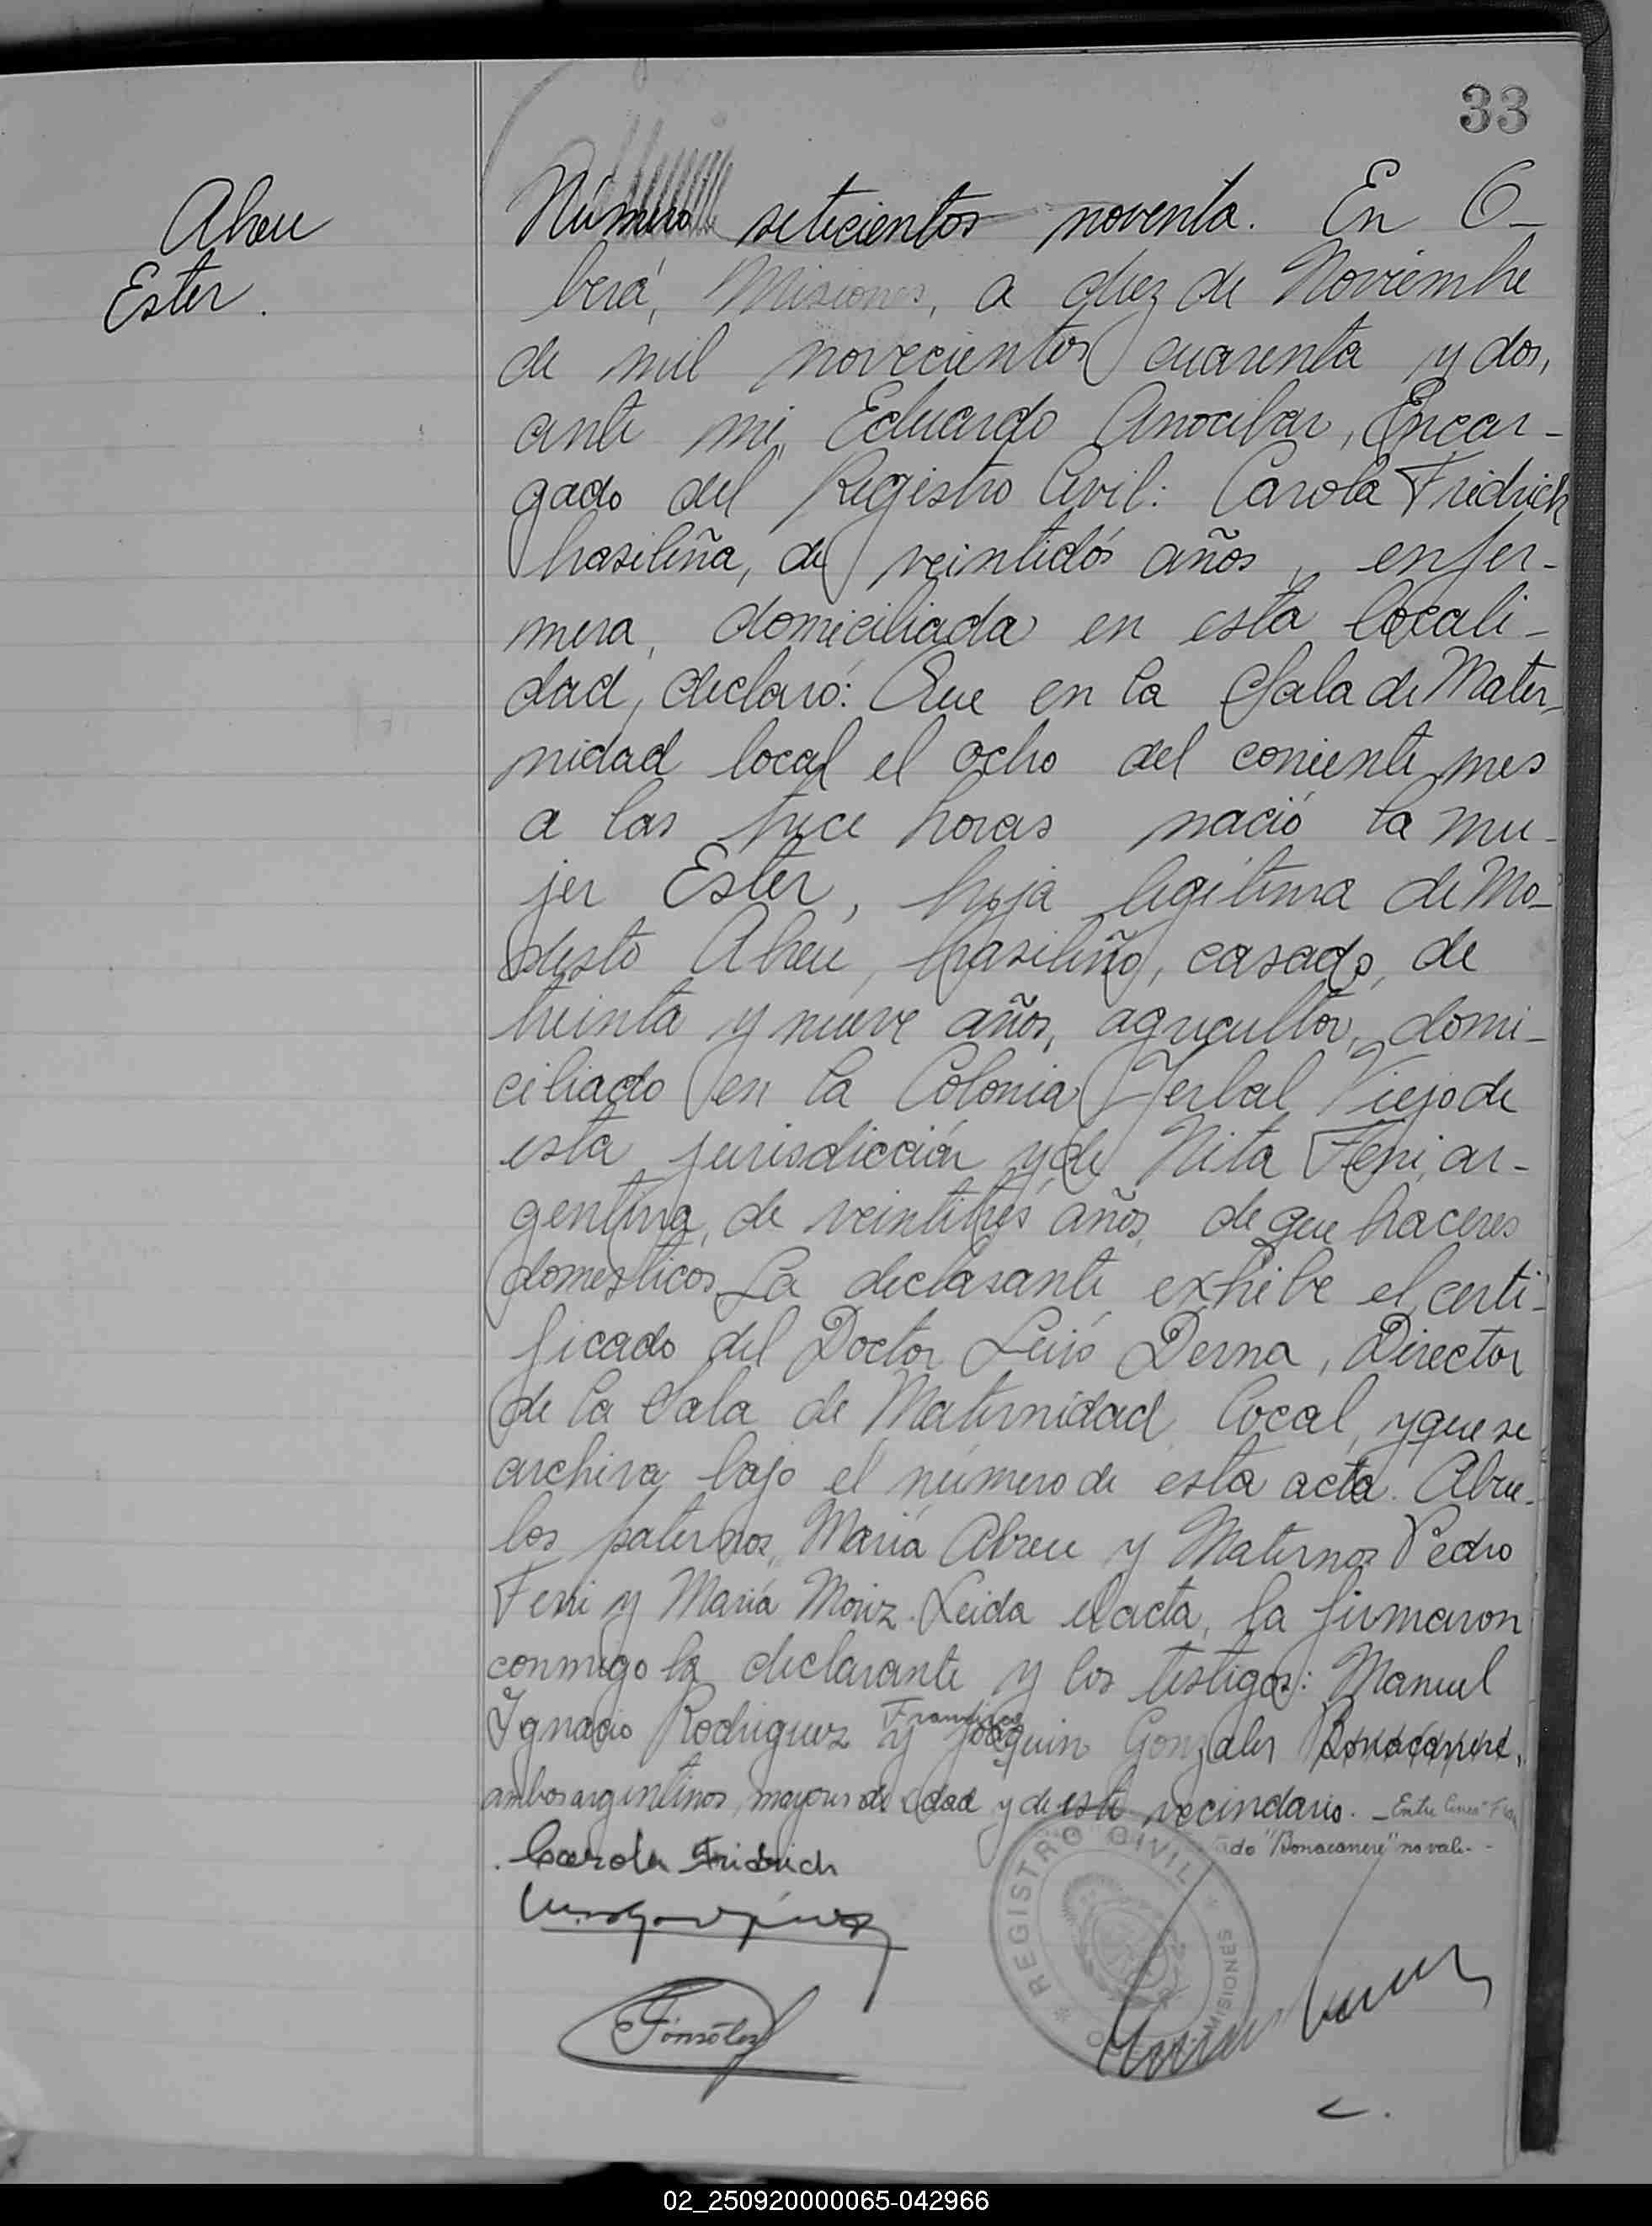 33
Abreu
Ester.
Número setecientos noventa. En O-
berá, Misiones, a diez de Noviembre
de mil novecientos cuarenta y dos,
ante mi, Eduardo Anocibar, Encar-
gado del Registro Civil: Carola Fridrich
brasileña, de veintidós años, enfer-
mera, domiciliada en esta locali-
dad, declaró: Que en la Sala de Mater-
nidad local el ocho del corriente mes
a las trece horas nació la mu-
jer Ester, hija legítima de Mo-
desto Abreu, brasileño, casado, de
treinta y nueve años, agricultor, domi-
ciliado en la Colonia Yerbal Viejo de
esta jurisdicción y de Nita Ferri, ar-
gentina, de veintitrés años, de que haceres
domésticos. La declarante exhibe el certi-
ficado del Doctor Luis Derna, Director
de la Sala de Maternidad local, y que se
archiva bajo el número de esta acta. Abue-
los paternos, María Abreu y Maternos Pedro
Ferri y María Moriz. Leida el acta, la firmaron
conmigo la declarante y los testigos: Manuel
Ignacio Rodriguez y Francisco Joaquin Gonzales Bonacanere,
ambos argentinos, mayores de edad y de este vecindario. - Entre linea
"Bonacanere" no vale--
Carola Fridrich
REGISTRO CIVIL
MISIONES
02_250920000065-042966